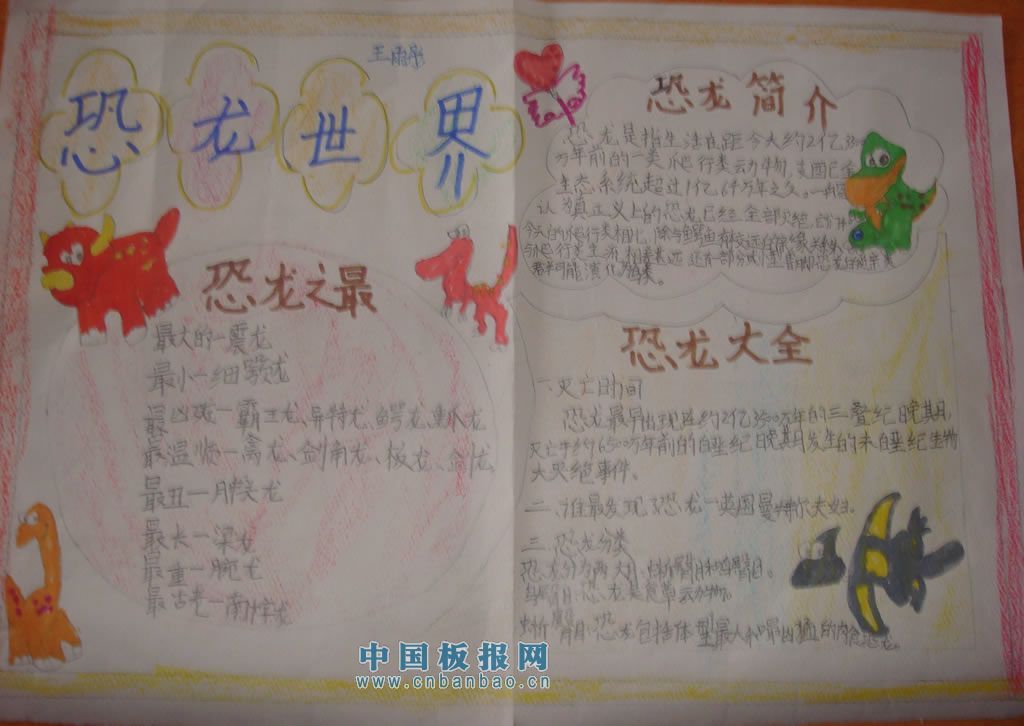 恐龙世界
王雨彤
恐龙之最
最大的—震龙
最小—细颚龙
最凶残—霸王龙、异特龙、鳄龙、重爪龙
最温顺—禽龙、剑角龙、板龙、剑龙
最丑—胖龙
最长—梁龙
最重—腕龙
最古老—南十字龙
恐龙简介
恐龙是指生活在距今大约2亿3500
万年前的一类爬行类动物,支配
生态系统超过1亿6千万年之久。
认为真正义上的恐龙已经全部灭绝
今天的爬行类相比,除与鳄鱼有较远
与爬行类
可能演化为鸟类。
恐龙大全
一.灭亡时间
恐龙最早出现在约2亿3500万年的三叠纪晚期,
灭亡于约6500万年前的白垩纪晚期发生的末白垩纪生物
大灭绝事件。
二、谁最发现了恐龙—英国曼特尔夫妇。
三.恐龙分类
恐龙分为两大目:蜥臀目和鸟臀目。
鸟臀目恐龙是食草动物。
蜥臀目恐龙包括体型最大和最凶猛的肉食恐龙。
中国板报网
www.cnbanbao.cn